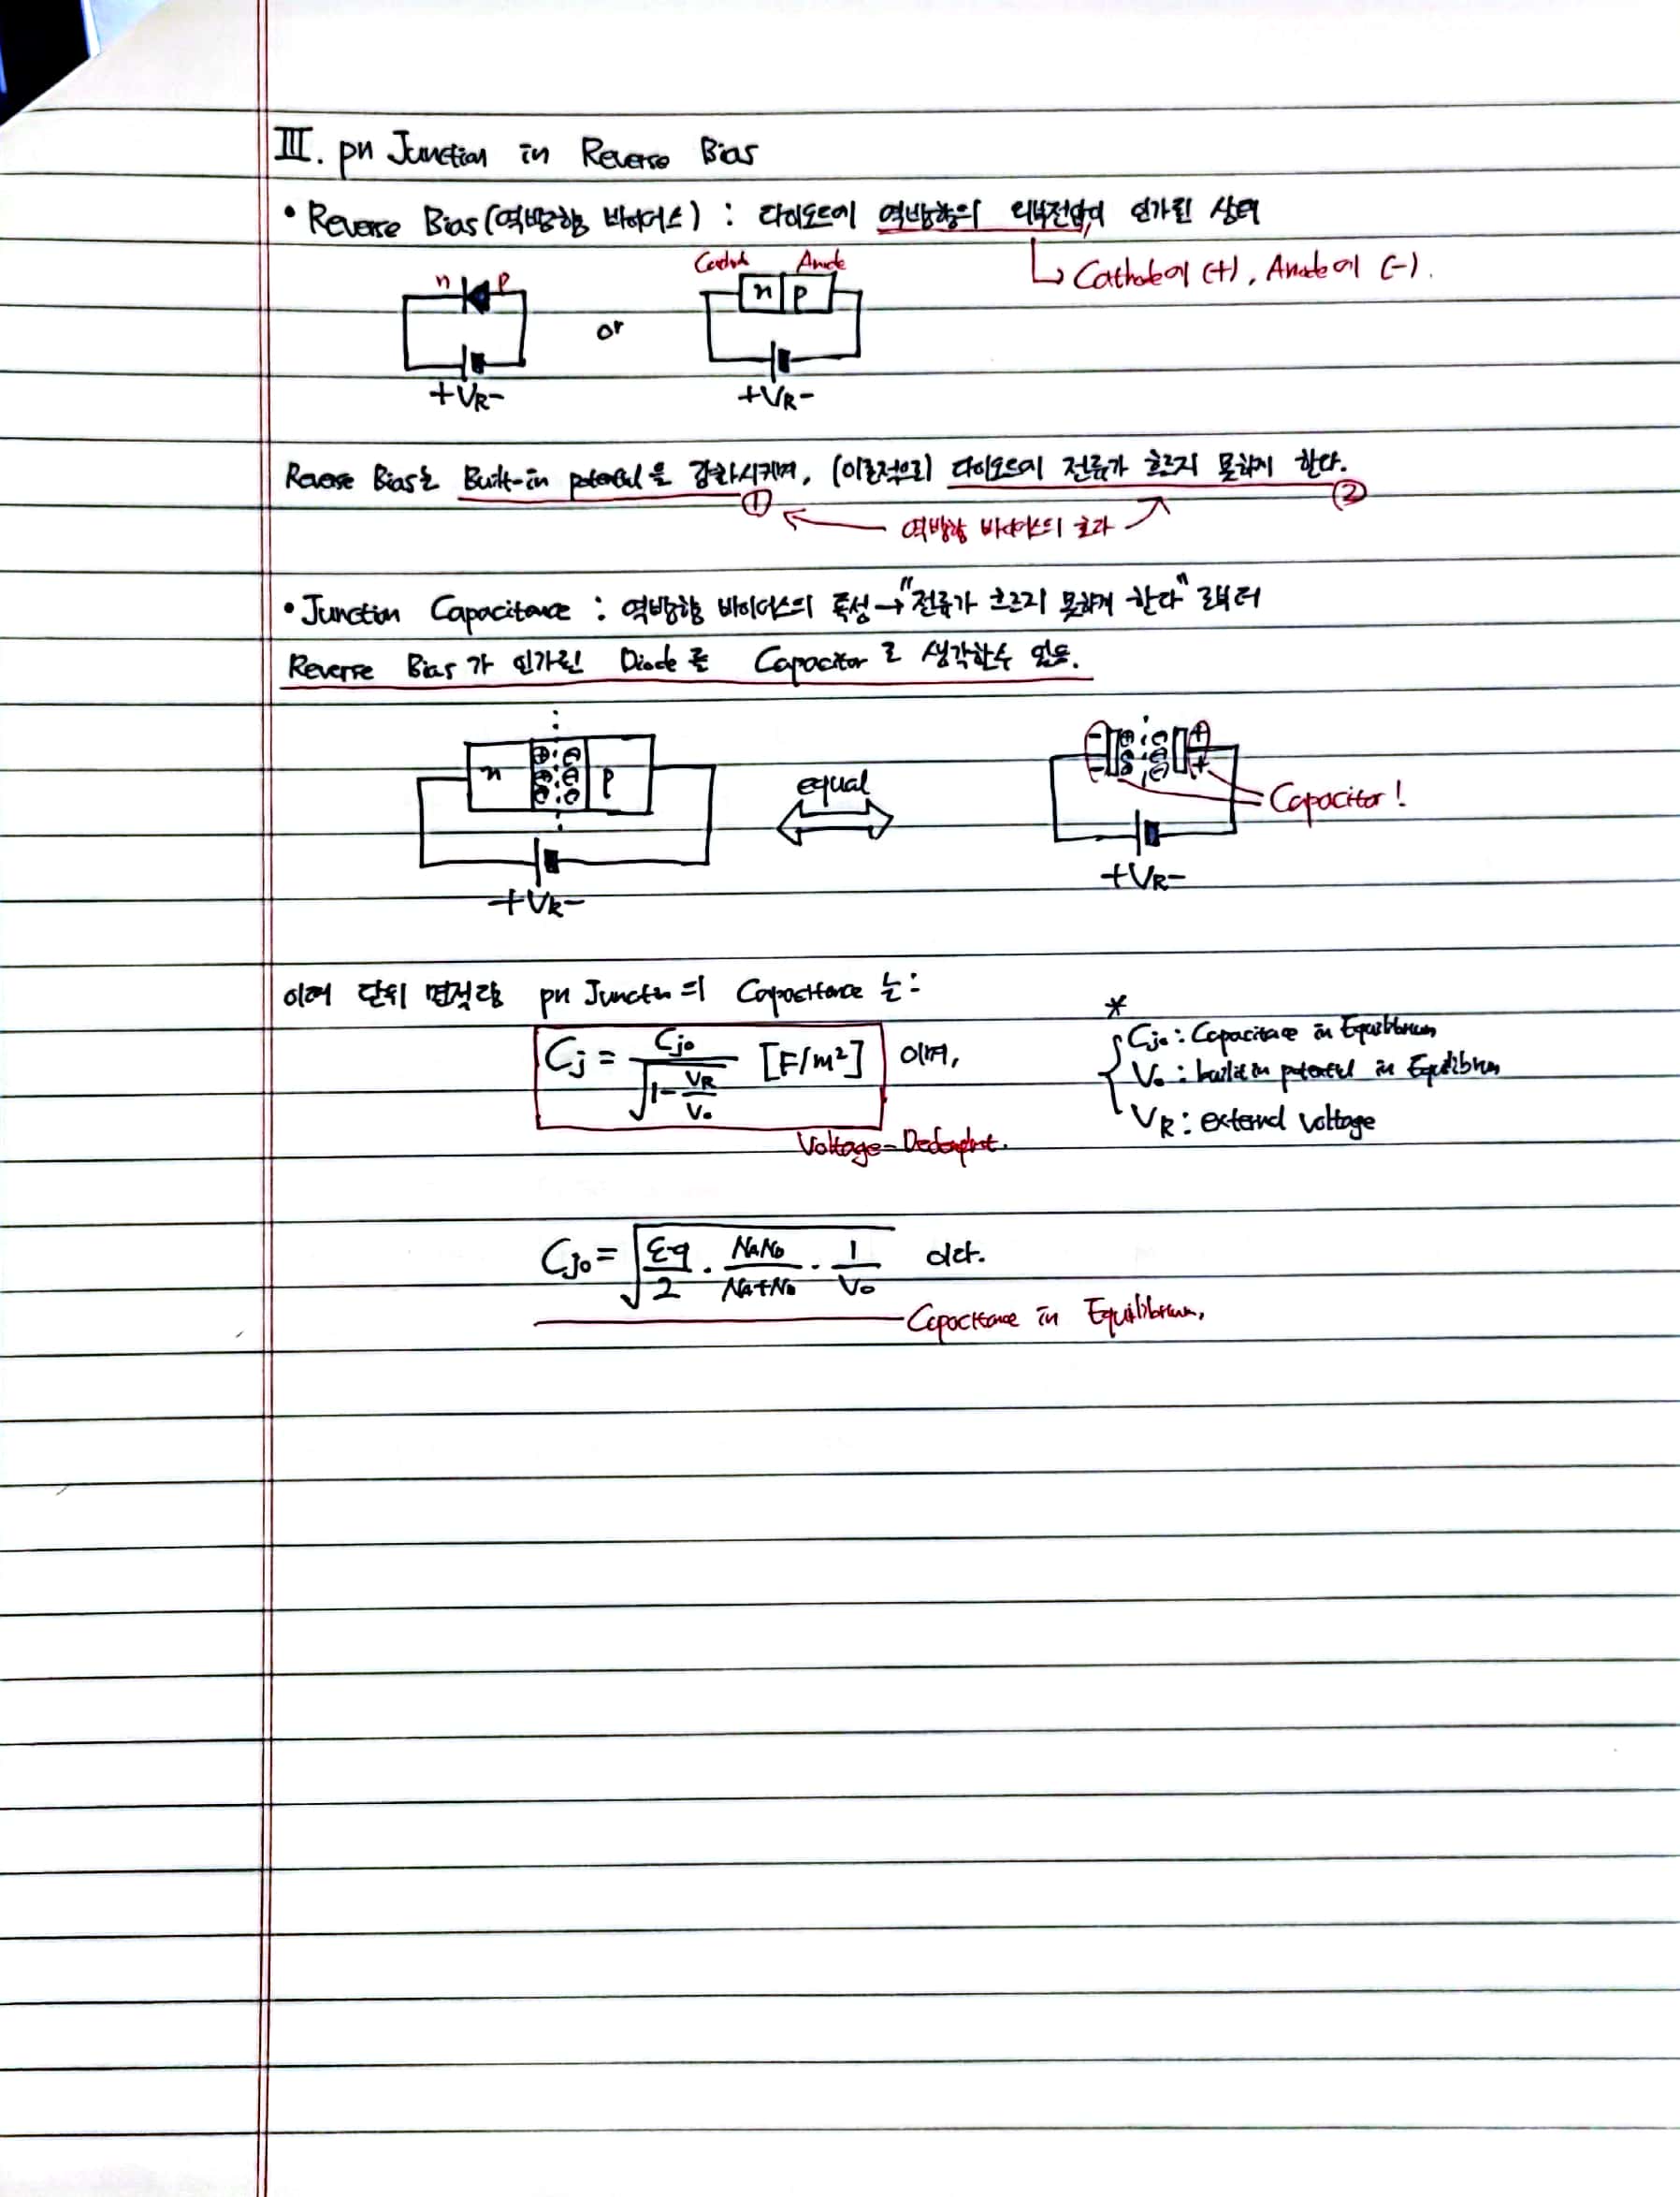 III. pn Junction in Reverse Bias
• Reverse Bias(역방향 바이어스) : 다이오드에 역방향의 외부전압이 인가된 상태
Cathode Anode
↳ Cathode에 (+), Anode에 (-).
n p
n p
or
+VR-
+VR-
Reverse Bias는 Built-in potential을 강화시키며, (이론적으로) 다이오드에 전류가 흐르지 못하게 한다.
① ②
역방향 바이어스의 효과
• Junction Capacitance : 역방향 바이어스의 특성→"전류가 흐르지 못하게 한다" 로부터
Reverse Bias가 인가된 Diode를 Capacitor로 생각할수 있음.
n ⊕ ⊖ p
⊕ ⊖
⊕ ⊖
equal
- ⊕ ⊖ +
- ⊕ ⊖ +
Capacitor!
+VR-
+VR-
이때 단위 면적당 pn Junction의 Capacitance는:
Cj = Cj0 / √(1 - VR/V0) [F/m²] 이며,
Voltage-Dependent.
*
Cj0 : Capacitance in Equilibrium
V0 : built in potential in Equilibrium
VR : external voltage
Cj0 = √(εq/2 · NAND/NA+ND · 1/V0) 이다.
Capacitance in Equilibrium.